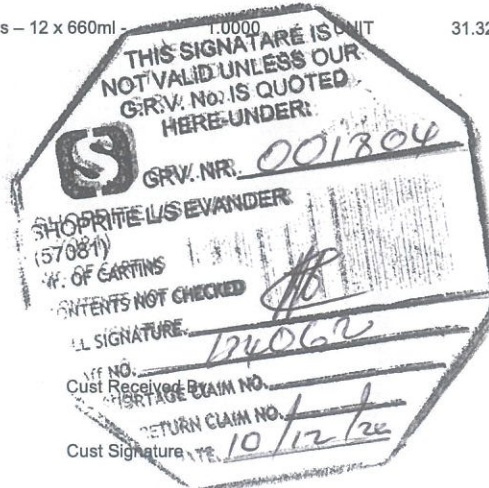 s – 12 x 660ml - 1.0000 UNIT 31.32
THIS SIGNATARE IS
NOT VALID UNLESS OUR
G.R.V. No. IS QUOTED
HERE-UNDER:
S GRV. NR. 001804
SHOPRITE L/S EVANDER
(57081)
OF CARTINS
CONTENTS NOT CHECKED
LL SIGNATURE.
NO. 134062
Cust Received By
SHORTAGE CLAIM NO.
RETURN CLAIM NO.
Cust Signature
10/12/20